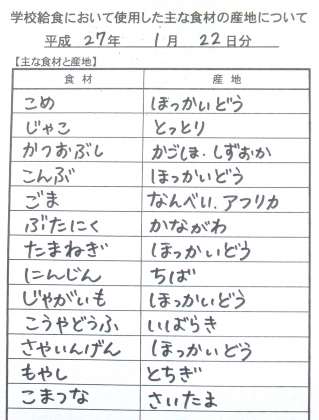 学校給食において使用した主な食材の産地について
平成 27年 1月 22日分
【主な食材と産地】
食材 産地
こめ ほっかいどう
じゃこ とっとり
かつおぶし かごしま・しずおか
こんぶ ほっかいどう
ごま なんべい.アフリカ
ぶたにく かながわ
たまねぎ ほっかいどう
にんじん ちば
じゃがいも ほっかいどう
こうやどうふ いばらき
さやいんげん ほっかいどう
もやし とちぎ
こまつな さいたま